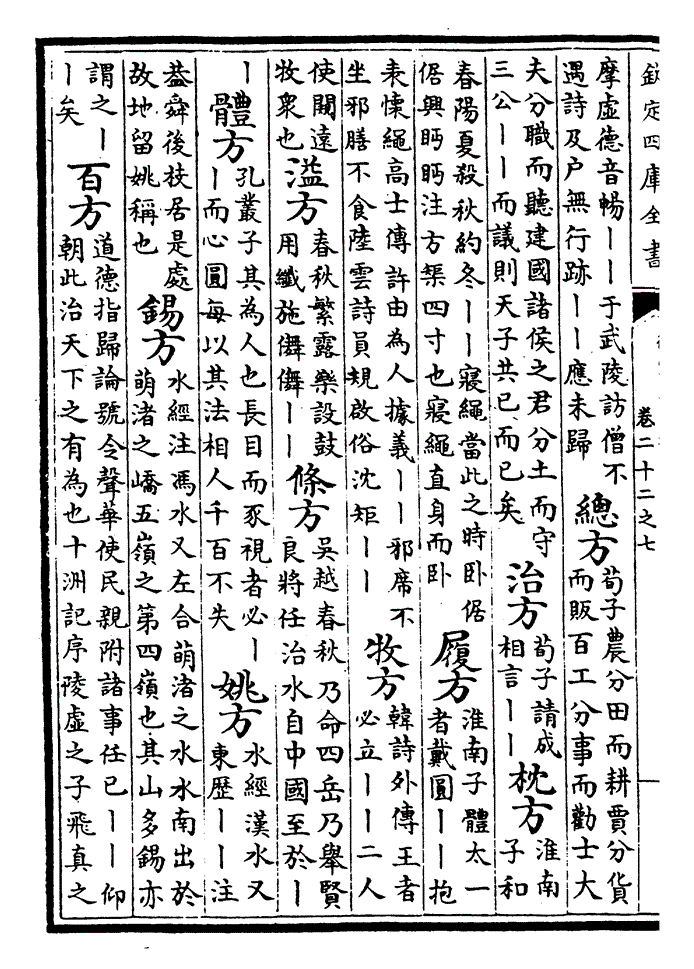 欽定四庫全書
卷二十二之七
摩虛德音暢丨丨于武陵訪僧不遇詩及户無行跡丨丨應未歸 總方 荀子農分田而耕賈分貨而販百工分事而勸士大
夫分職而聽建國諸侯之君分土而守三公丨丨而議則天子共已而已矣 治方 荀子請成相言丨丨 枕方 淮南子和
春陽夏殺秋約冬丨丨寢繩當此之時卧倨倨興眄眄注方榘四寸也寢繩直身而卧 履方 淮南子體太一者戴圓丨丨抱
表懷繩高士傳許由為人據義丨丨邪席不坐邪膳不食陸雲詩員規啟俗沈矩丨丨 牧方 韓詩外傳王者必立丨丨二人
使闚遠牧衆也 溢方 春秋繁露樂設鼓用纖施儛儛丨丨 條方 吳越春秋乃命四岳乃舉賢良將任治水自中國至於丨
丨 體方 孔叢子其為人也長目而豕視者必丨丨而心圓每以其法相人千百不失 姚方 水經漢水又東歷丨丨注
葢舜後枝居是處故地留姚稱也 錫方 水經注馮水又左合萌渚之水水南出於萌渚之嶠五嶺之第四嶺也其山多錫亦
謂之丨丨矣 百方 道德指歸論號令聲華使民親附諸事任已丨丨仰朝此治天下之有為也十洲記序陵虛之子飛真之